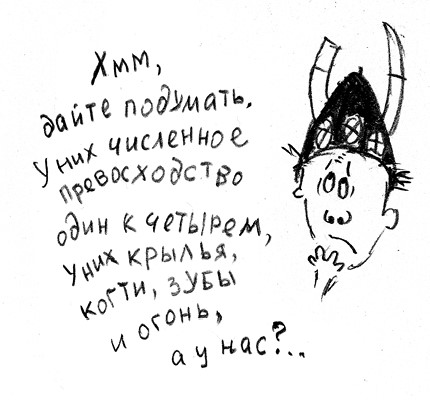 Хмм,
дайте подумать.
У них численное
превосходство
один к четырем,
у них крылья,
когти, зубы
и огонь,
а у нас?..